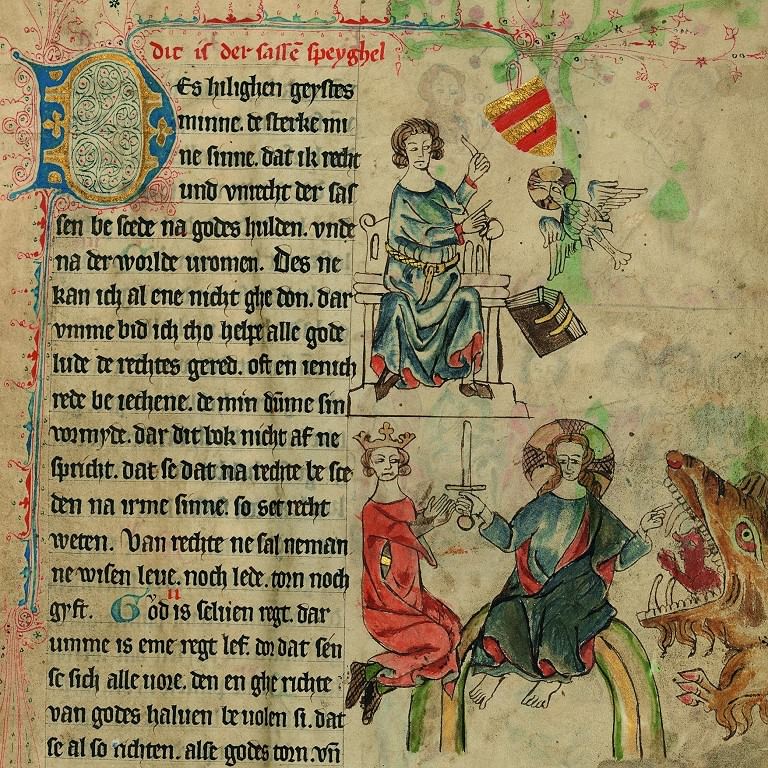 dit is der sassē speyghel
Des hilighen geystes
minne. de sterke mi
ne sinne. dat ik recht
und vnrecht der sas
sen be scede na godes hulden. vnde
na der worlde uromen. Des ne
kan ich al ene nicht ghe don. dar
vmme bid ich tho helpe alle gode
lude de rechtes gered. oft en ienich
rede be iechene. de min dūme sin
vormyde. dar dit bok nicht af ne
spricht. dat se dat na rechte be sce
den na irme sinne. so set recht
weten. Van rechte ne sal neman
ne wisen leue. noch lede. torn noch
gyft. God is seluen regt. dar
umme is eme regt lef. dor dat sen
se sich alle uore. den en ghe richte
van godes haluen be uolen si. dat
se al so richten. alse godes torn. vñ